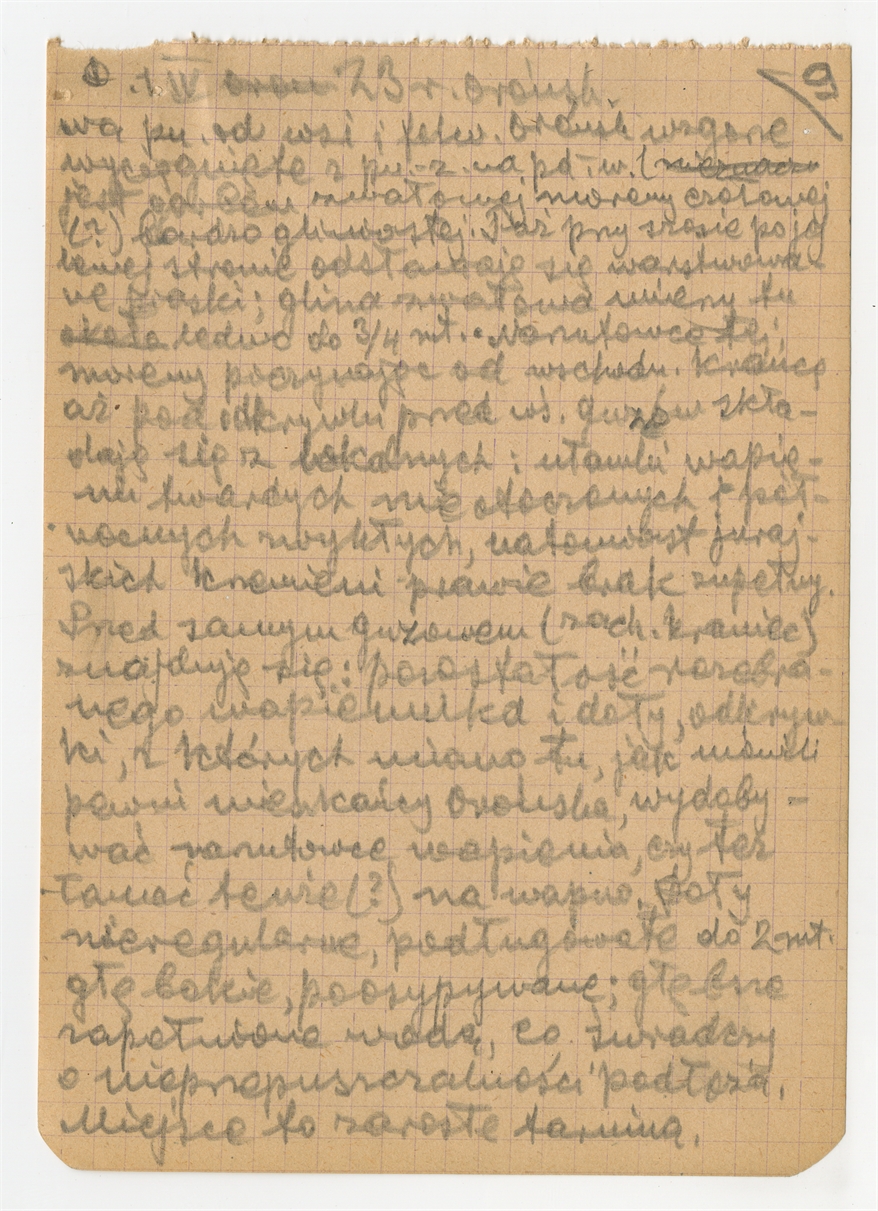 ① .1 IV 23 r. Orońsk. 9
Na pn. od wsi i folw. Orońsk wzgórze
wyciągnięte z pn.-z. na pd.-w. (
jest garbem zwałowej moreny czołowej
(?) bardzo gliniastej. Tuż przy szosie po jej
lewej stronie odsłaniają się warstwowa-
ne piaski; glina zwałowa mierzy tu
około ledwo do 3/4 mt.. Narzutowce tej
moreny poczynając od wschodn. krańca
aż pod odkrywki przed wś. Guzów skła-
dają się z lokalnych: ułamki wapie-
ni twardych nieotoczonych i pół-
nocnych zwykłych, natomiast juraj-
skich krzemieni prawie brak zupełny.
Przed samym Guzowem (zach. kraniec)
znajduje się: pozostałość rozebra-
nego wapiennika i doły, odkryw
ki, z których miano tu, jak mówili
pewni mieszkańcy Orońska, wydoby-
wać narzutowce wapienia, czy też
łamać teńże (?) na wapno. Doły
nieregularne, podługowate do 2 mt.
głębokie, poosypywane; głębsze
zapełnione wodą, co świadczy
o nieprzepuszczalności podłoża.
Miejsce to zarosłe tarniną.